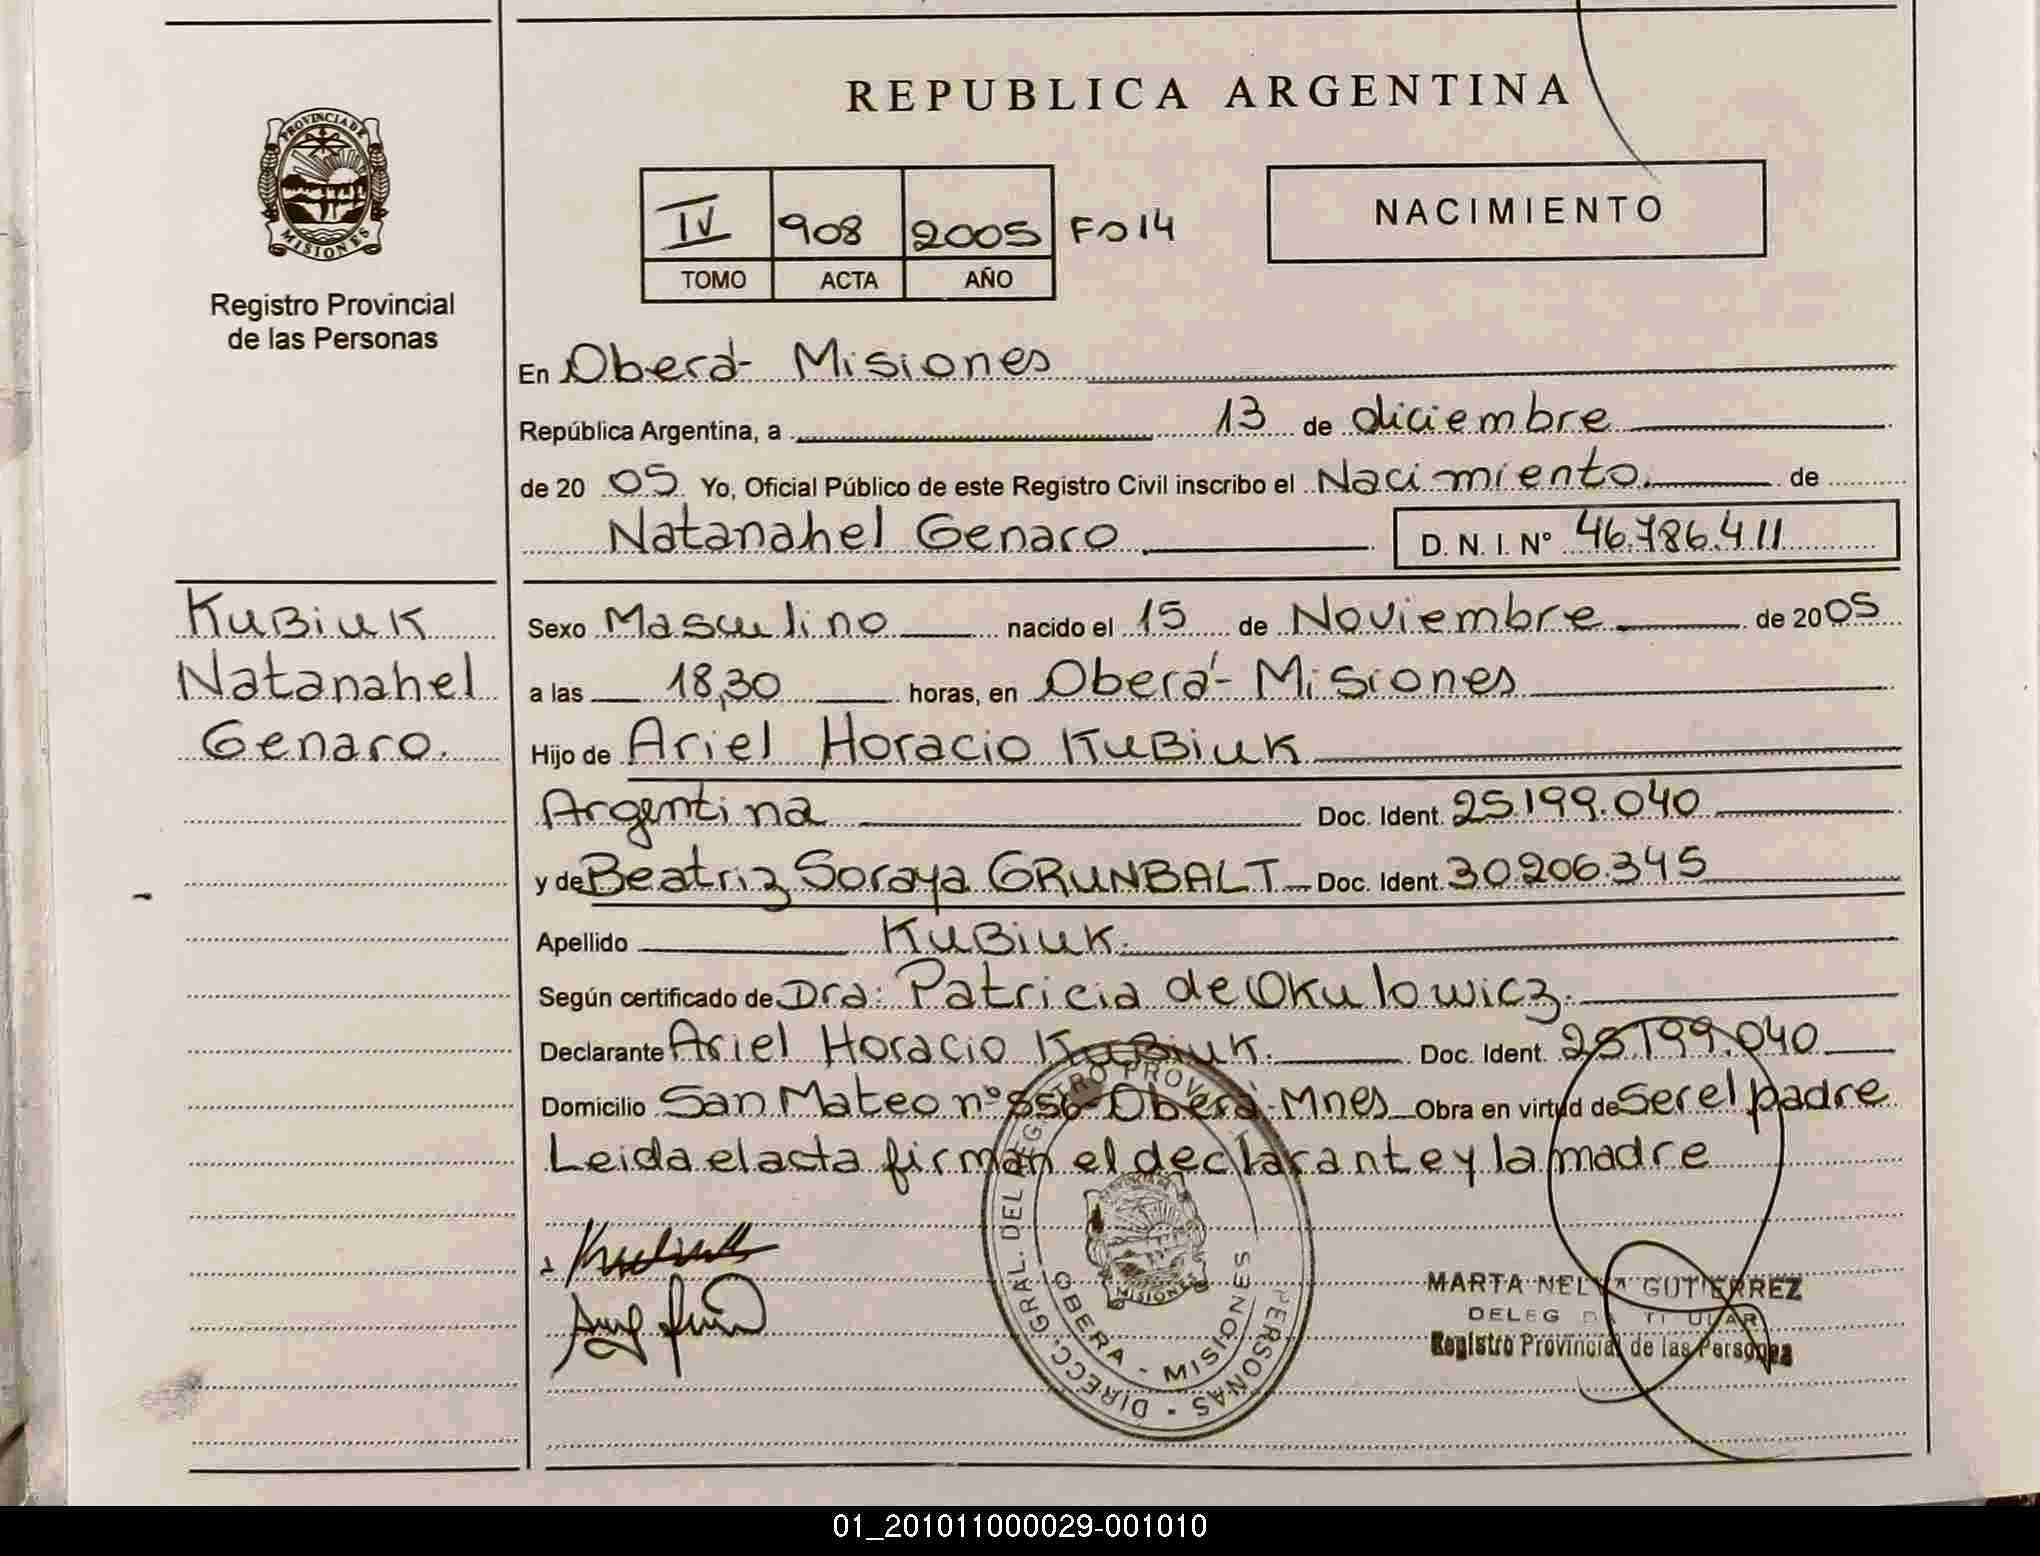 REPUBLICA ARGENTINA
PROVINCIA DE
MISIONES
Registro Provincial
de las Personas
IV 908 2005 Fo 14
TOMO ACTA AÑO
NACIMIENTO
En Oberá - Misiones
República Argentina, a 13 de diciembre
de 20 05 Yo, Oficial Público de este Registro Civil inscribo el Nacimiento. de
Natanahel Genaro D. N. I. N° 46.786.411
Kubiuk
Natanahel
Genaro.
Sexo Masculino nacido el 15 de Noviembre de 2005
a las 18,30 horas, en Oberá - Misiones
Hijo de Ariel Horacio Kubiuk
Argentina Doc. Ident. 25.199.040
y de Beatriz Soraya GRUNBALT Doc. Ident. 30.206.345
Apellido Kubiuk.
Según certificado de Dra: Patricia de Okulowicz.
Declarante Ariel Horacio Kubiuk. Doc. Ident. 25.199.040
Domicilio San Mateo n° 556 - Oberá - Mnes Obra en virtud de ser el padre
Leida el acta firman el declarante y la madre
Kubiuk
DIRECC. GRAL. DEL REGISTRO PROVINCIAL PERSONAS -
OBERA - MISIONES
MISIONES
MARTA NELVA GUTIERREZ
DELEGADA TITULAR
Registro Provincial de las Personas
01_201011000029-001010